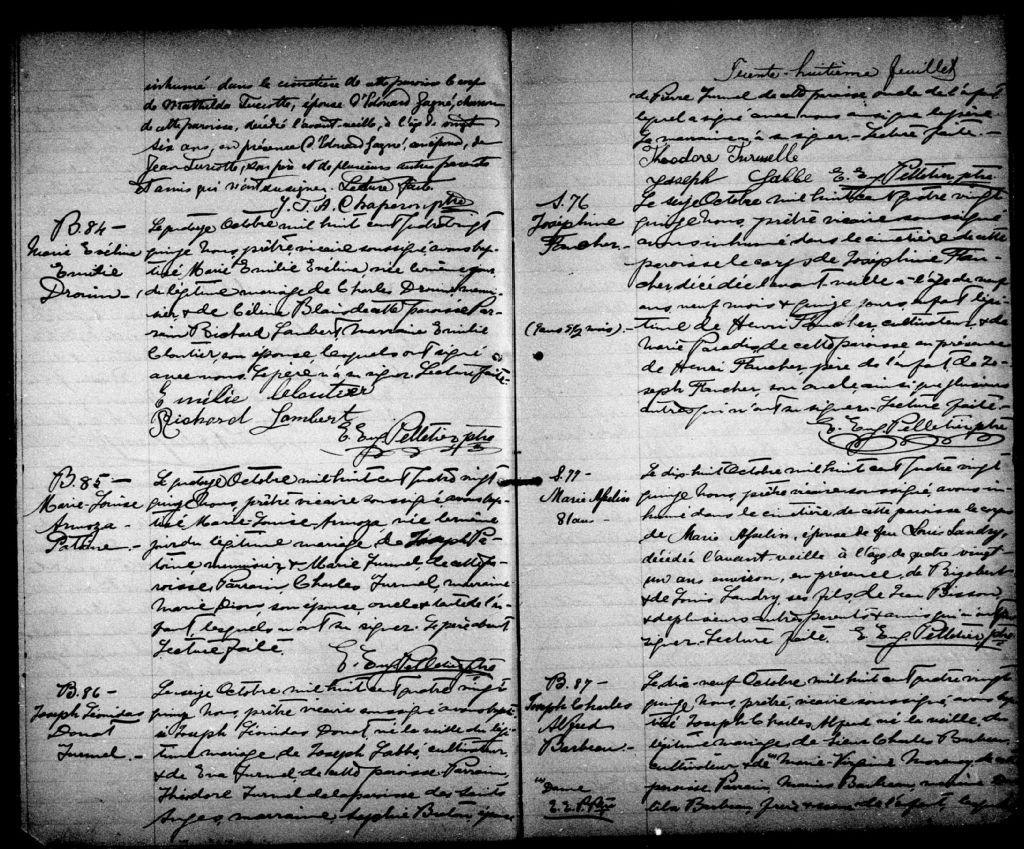 inhumé dans le cimetière de cette paroisse le corps
de Mathilde Turcotte, épouse d'Edouard Gagné,
de cette paroisse, décédé l'avant-veille, à l'âge de vingt
six ans, en présence d'Edouard Gagné, de
Jean Turcotte, son père et de plusieurs autres parents
et amis qui n'ont su signer. Lecture faite.
J. T. A. Chaperon ptre
B. 84 -
Marie Evélina
Emilie
Drouin -
Le quatorze Octobre mil huit cent quatre vingt
quinze Nous, prêtre vicaire soussigné avons bap-
tisé Marie Emilie Evélina née le même jour
du légitime mariage de Charles Drouin menui-
sier & de Célina Blais de cette paroisse Par-
rain Richard Lambert, marraine Emilie
Cloutier, son épouse, lesquels ont signé
avec nous. Le père n'a su signer. Lecture faite.
Emélie Cloutier
Richard Lambert
E. Eug. Pelletier ptre
B. 85 -
Marie-Louise
Arnoza
Patoine -
Le quatorze Octobre mil huit cent quatre vingt
quinze Nous, prêtre vicaire soussigné, avons bap-
tisé Marie-Louise Arnoza née le même
jour du légitime mariage de Joseph Pa-
toine menuisier & Marie Turmel de cette pa-
roisse. Parrain, Charles Turmel, marraine
Marie Dion, son épouse, oncle & tante de l'en-
fant, lesquels n'ont su signer. Le père absent
Lecture faite.
E. Eug. Pelletier ptre
B. 86 -
Joseph Léonidas
Donat
Turmel
Le seize Octobre mil huit cent quatre vingt
quinze Nous, prêtre vicaire soussigné avons bapti-
sé Joseph Léonidas Donat né la veille du légi-
time mariage de Joseph Labbé, cultivateur,
& de Eva Turmel de cette paroisse Parrain,
Théodore Turmel de la paroisse des Saints
Anges, marraine, Sophie Breton, épouse
Trente-huitième feuillet
de Pierre Turmel de cette paroisse oncle de l'enfant
lequel a signé avec nous ainsi que le père.
La marraine n'a su signer. Lecture faite.
Théodore Turmelle
Joseph Labbé E. Eug. Pelletier ptre
S. 76
Joséphine
Faucher -
(9 ans 9½ mois) -
Le seize Octobre mil huit cent quatre vingt
quinze Nous, prêtre vicaire soussigné
avons inhumé dans le cimetière de cette
paroisse le corps de Joséphine Fau-
cher, décédée l'avant veille à l'âge de neuf
ans, neuf mois & quinze jours, enfant légi-
time de Henri Faucher, cultivateur, & de
Marie Paradis de cette paroisse en présence
de Henri Faucher, père de l'enfant de Jo-
seph Faucher, son oncle, ainsi que plusieurs
autres qui n'ont su signer. Lecture faite.
E. Eug. Pelletier ptre
S. 77 -
Marie Asselin
81 ans -
Le dix huit Octobre mil huit cent quatre vingt
quinze Nous, prêtre vicaire soussigné, avons in-
humé dans le cimetière de cette paroisse le corps
de Marie Asselin, épouse de feu Louis Landry,
décédée l'avant-veille à l'âge de quatre vingt
un ans environ, en présence, de Rigobert
& de Louis Landry, ses fils, de Jean Bisson
& de plusieurs autres parents & amis qui n'ont su
signer. Lecture faite. E. Eug. Pelletier ptre
B. 87 -
Joseph Charles
Alfred
Barbeau -
E. E. P. Ptre
Le dix-neuf Octobre mil huit cent quatre vingt
quinze Nous, prêtre vicaire, soussigné, avons bap-
tisé Joseph Charles Alfred né la veille du
légitime mariage de Charles Barbeau
cultivateur & de Marie-Virginie Morency de cette
paroisse Parrain, Barbeau, marraine
Barbeau, frère & soeur de l'enfant, lesquels